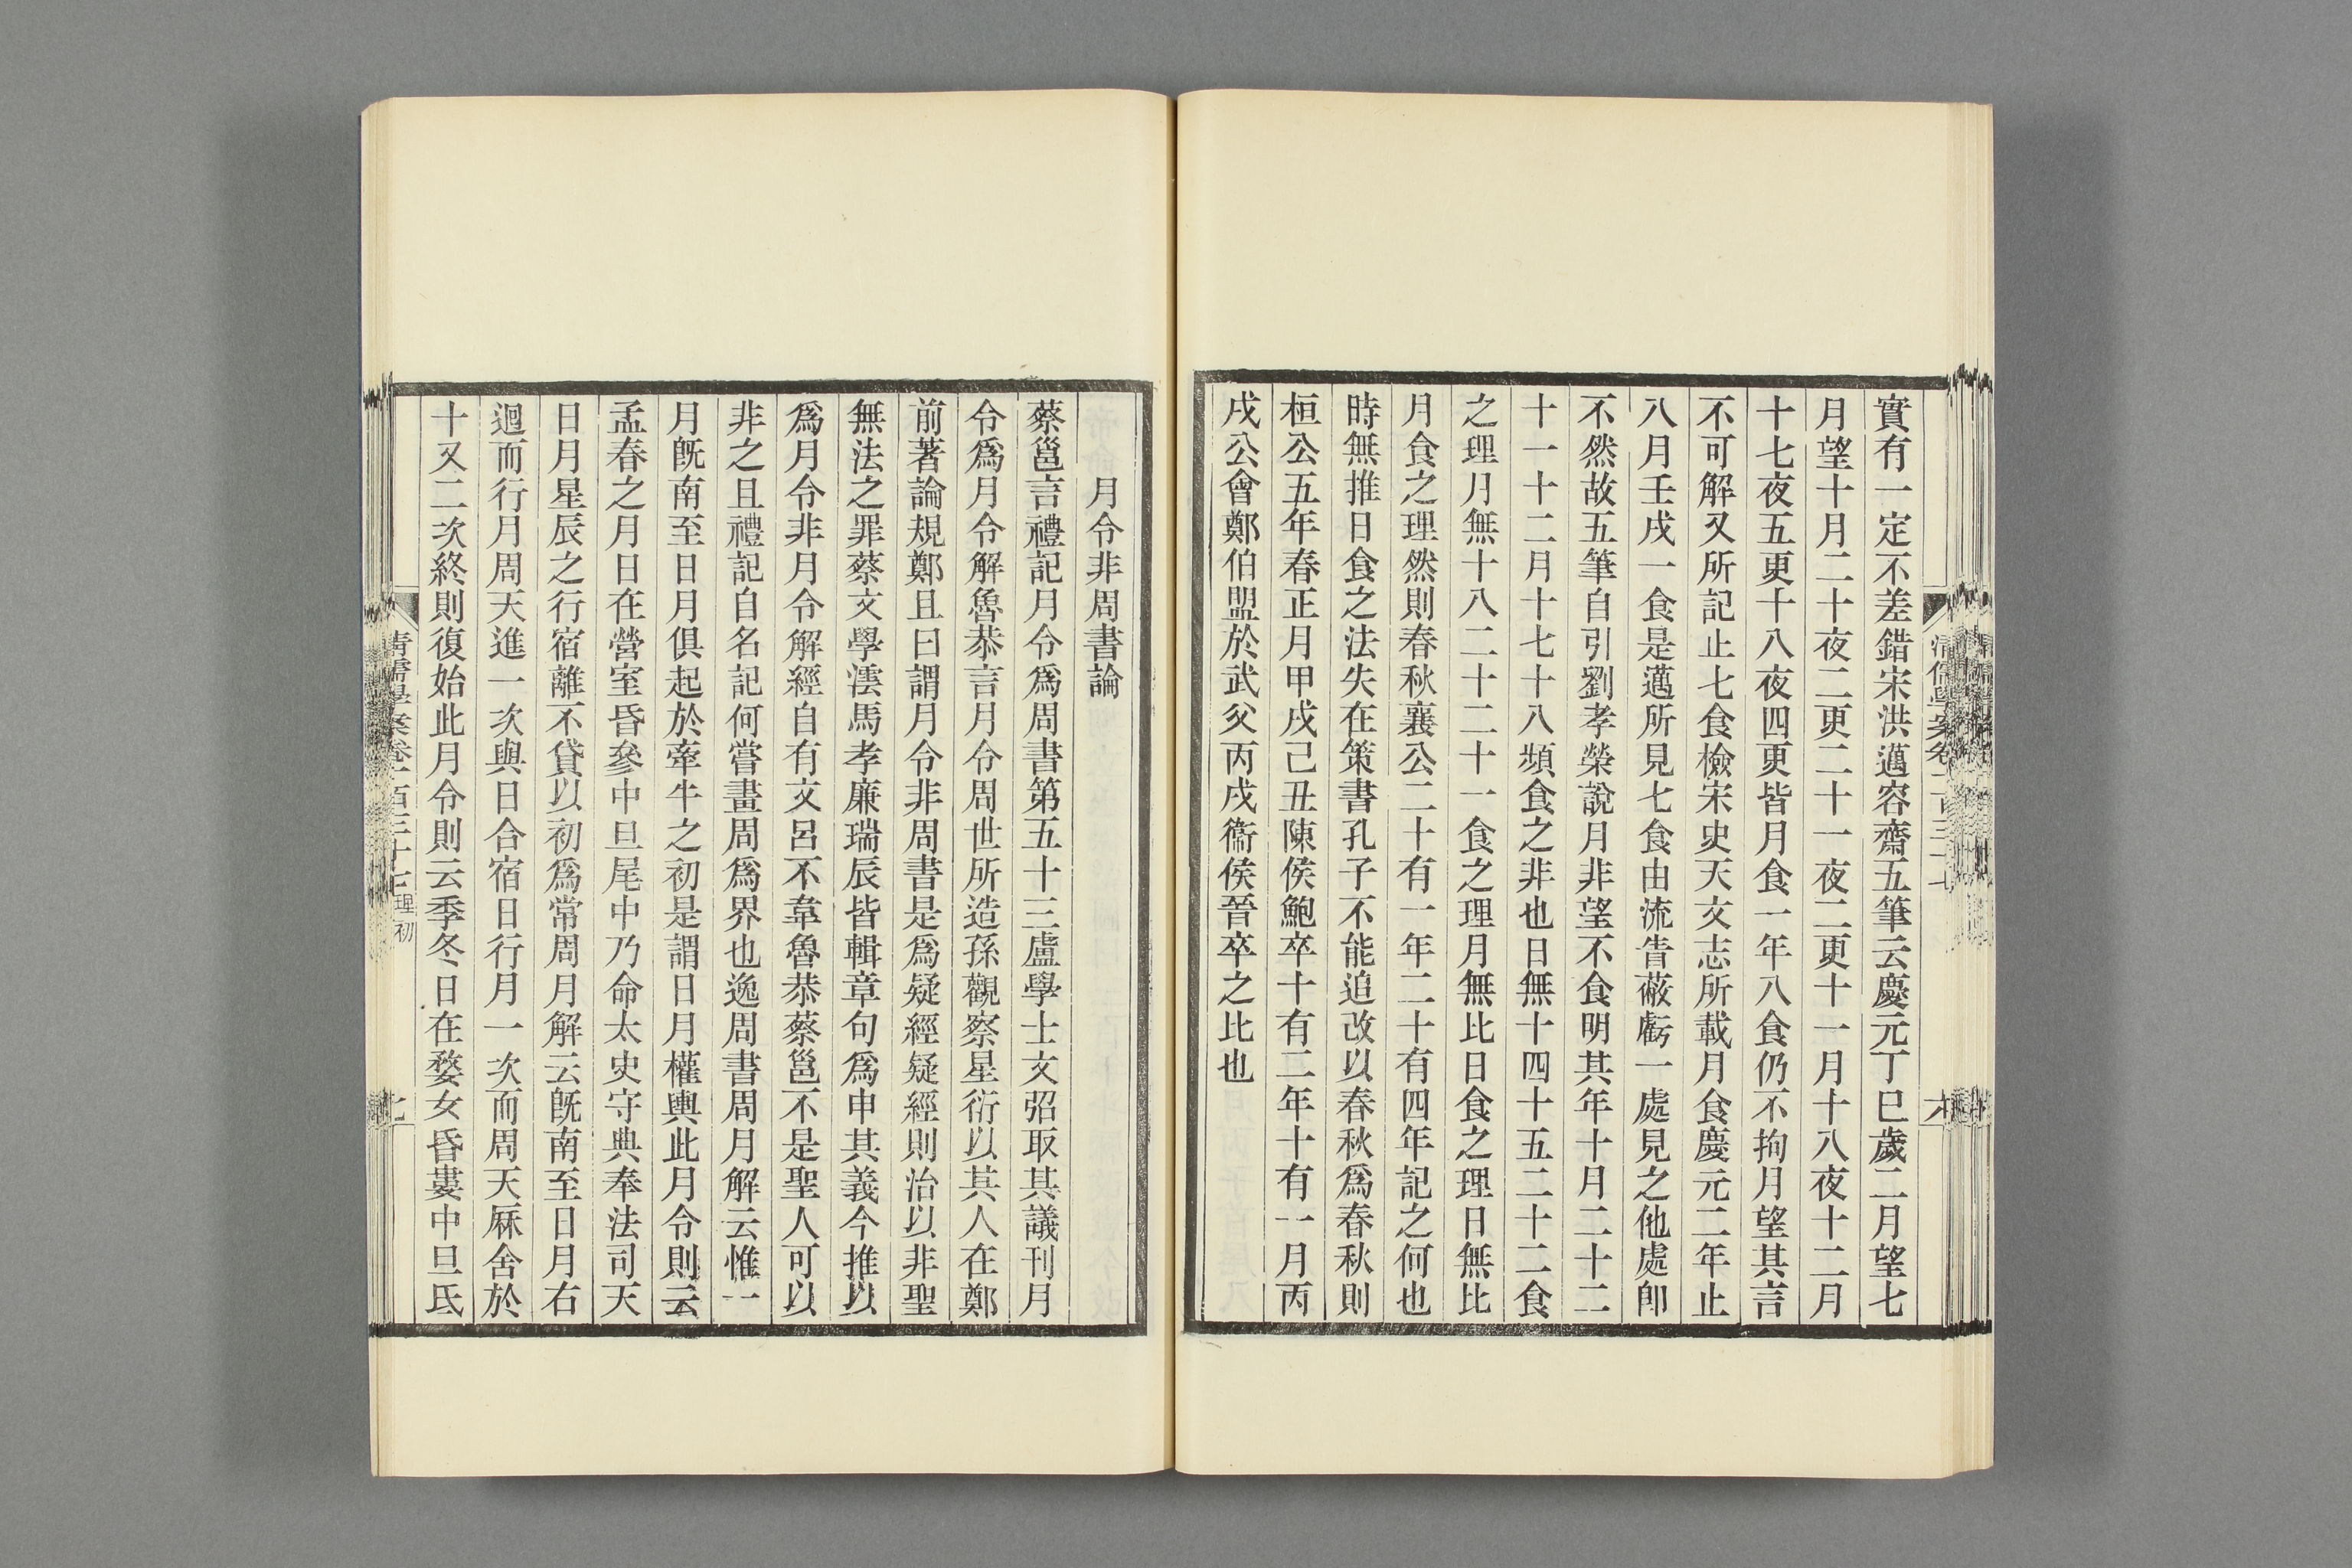 實有一定不差錯宋洪邁容齋五筆云慶元丁巳歲二月望七
月望十月二十夜二更二十一夜二更十一月十八夜十二月
十七夜五更十八夜四更皆月食一年八食仍不拘月望其言
不可解又所記止七食檢宋史天文志所載月食慶元二年止
八月壬戌一食是邁所見七食由流眚蔽虧一處見之他處卽
不然故五筆自引劉孝榮說月非望不食明其年十月二十二
十一十二月十七十八頻食之非也日無十四十五二十二食
之理月無十八二十二十一食之理月無比日食之理日無比
月食之理然則春秋襄公二十有一年二十有四年記之何也
時無推日食之法失在策書孔子不能追改以春秋爲春秋則
桓公五年春正月甲戌己丑陳侯鮑卒十有二年十有一月丙
戌公會鄭伯盟於武父丙戌衞侯晉卒之比也
月令非周書論
蔡邕言禮記月令爲周書第五十三盧學士文弨取其議刊月
令爲月令解魯恭言月令周世所造孫觀察星衍以其人在鄭
前著論規鄭且曰謂月令非周書是爲疑經疑經則治以非聖
無法之罪蔡文學澐馬孝廉瑞辰皆輯章句爲申其義今推以
爲月令非月令解經自有文呂不韋魯恭蔡邕不是聖人可以
非之且禮記自名記何嘗畫周爲界也逸周書周月解云惟一
月旣南至日月俱起於牽牛之初是謂日月權輿此月令則云
孟春之月日在營室昏參中旦尾中乃命太史守典奉法司天
日月星辰之行宿離不貸以初爲常周月解云旣南至日月右
迴而行月周天進一次與日合宿日行月一次而周天厤舍於
十又二次終則復始此月令則云季冬日在婺女昏婁中旦氐
清儒學案卷一百三十七 理初
七